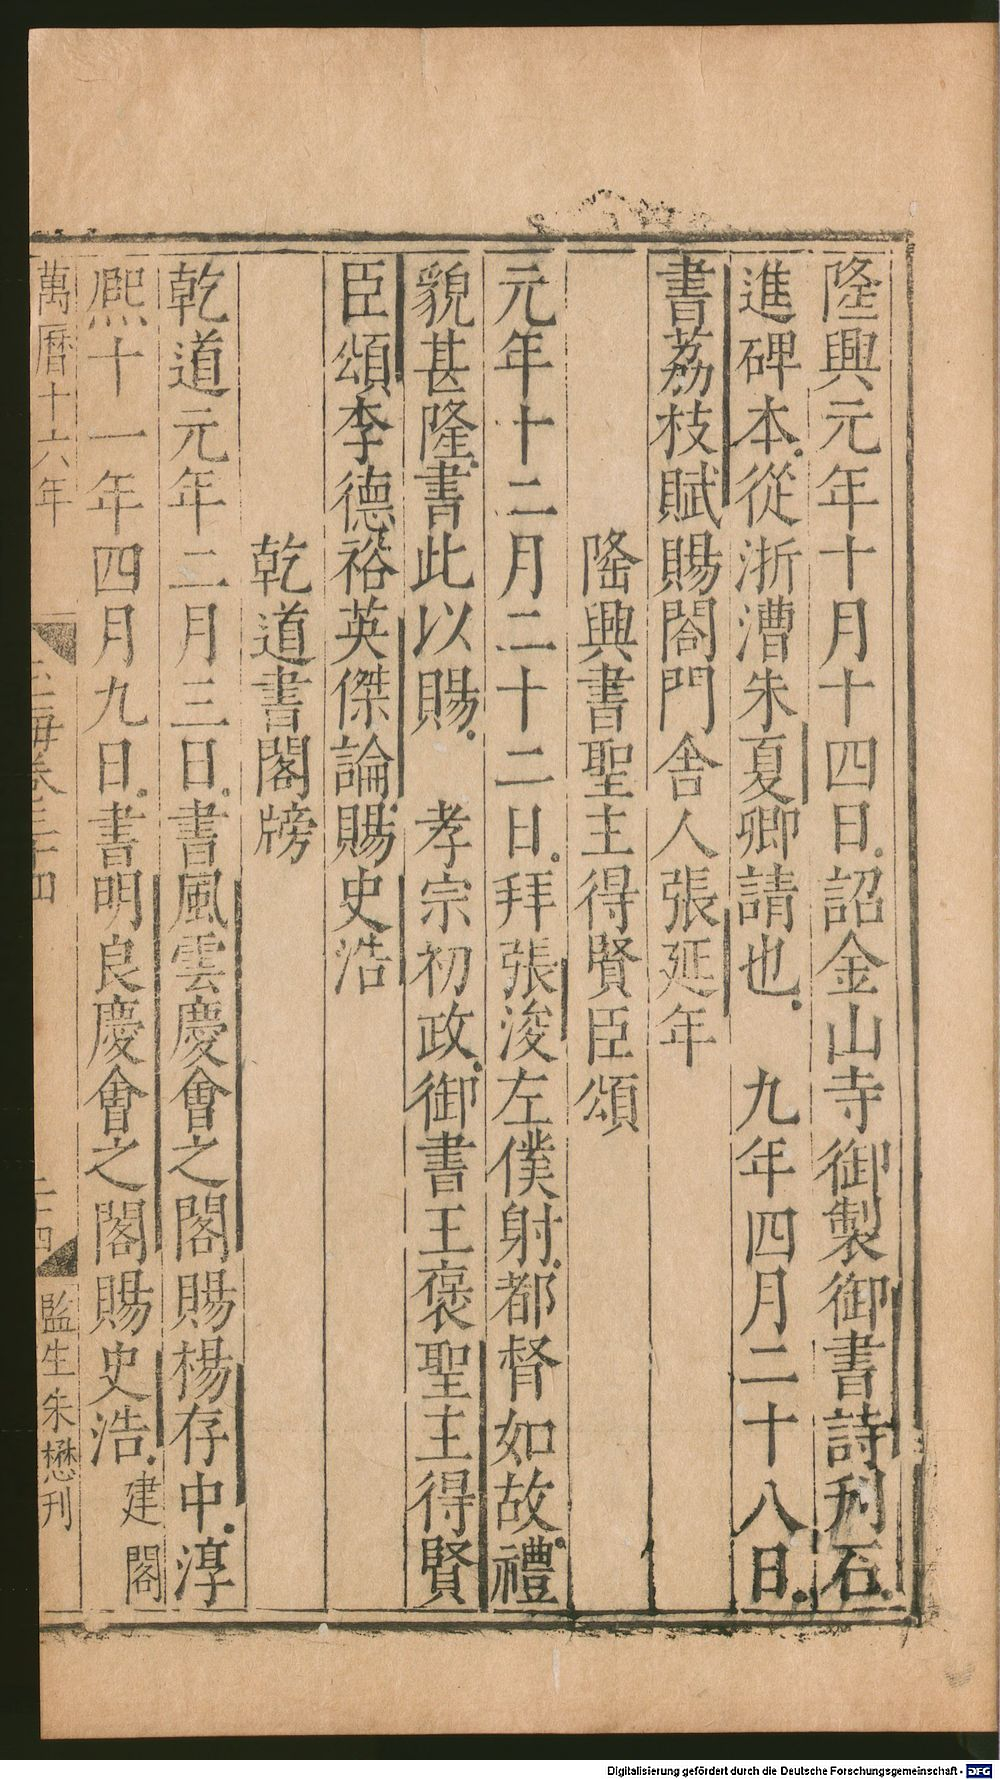 隆興元年十月十四日詔金山寺御製御書詩刋石
進碑本從浙漕朱夏卿請也　九年四月二十八日
書荔枝賦賜閤門舍人張延年
隆興書聖主得賢臣頌
元年十二月二十二日拜張浚左僕射都督如故禮
貌甚隆書此以賜　孝宗初政御書王褒聖主得賢
臣頌李德裕英傑論賜史浩
乾道書閣牓
乾道元年二月三日書風雲慶會之閣賜楊存中淳
熙十一年四月九日書明良慶會之閣賜史浩建閣
萬曆十六年
玉海卷三十四
二十四
監生朱懋刊
Digitalisierung gefördert durch die Deutsche Forschungsgemeinschaft - DFG